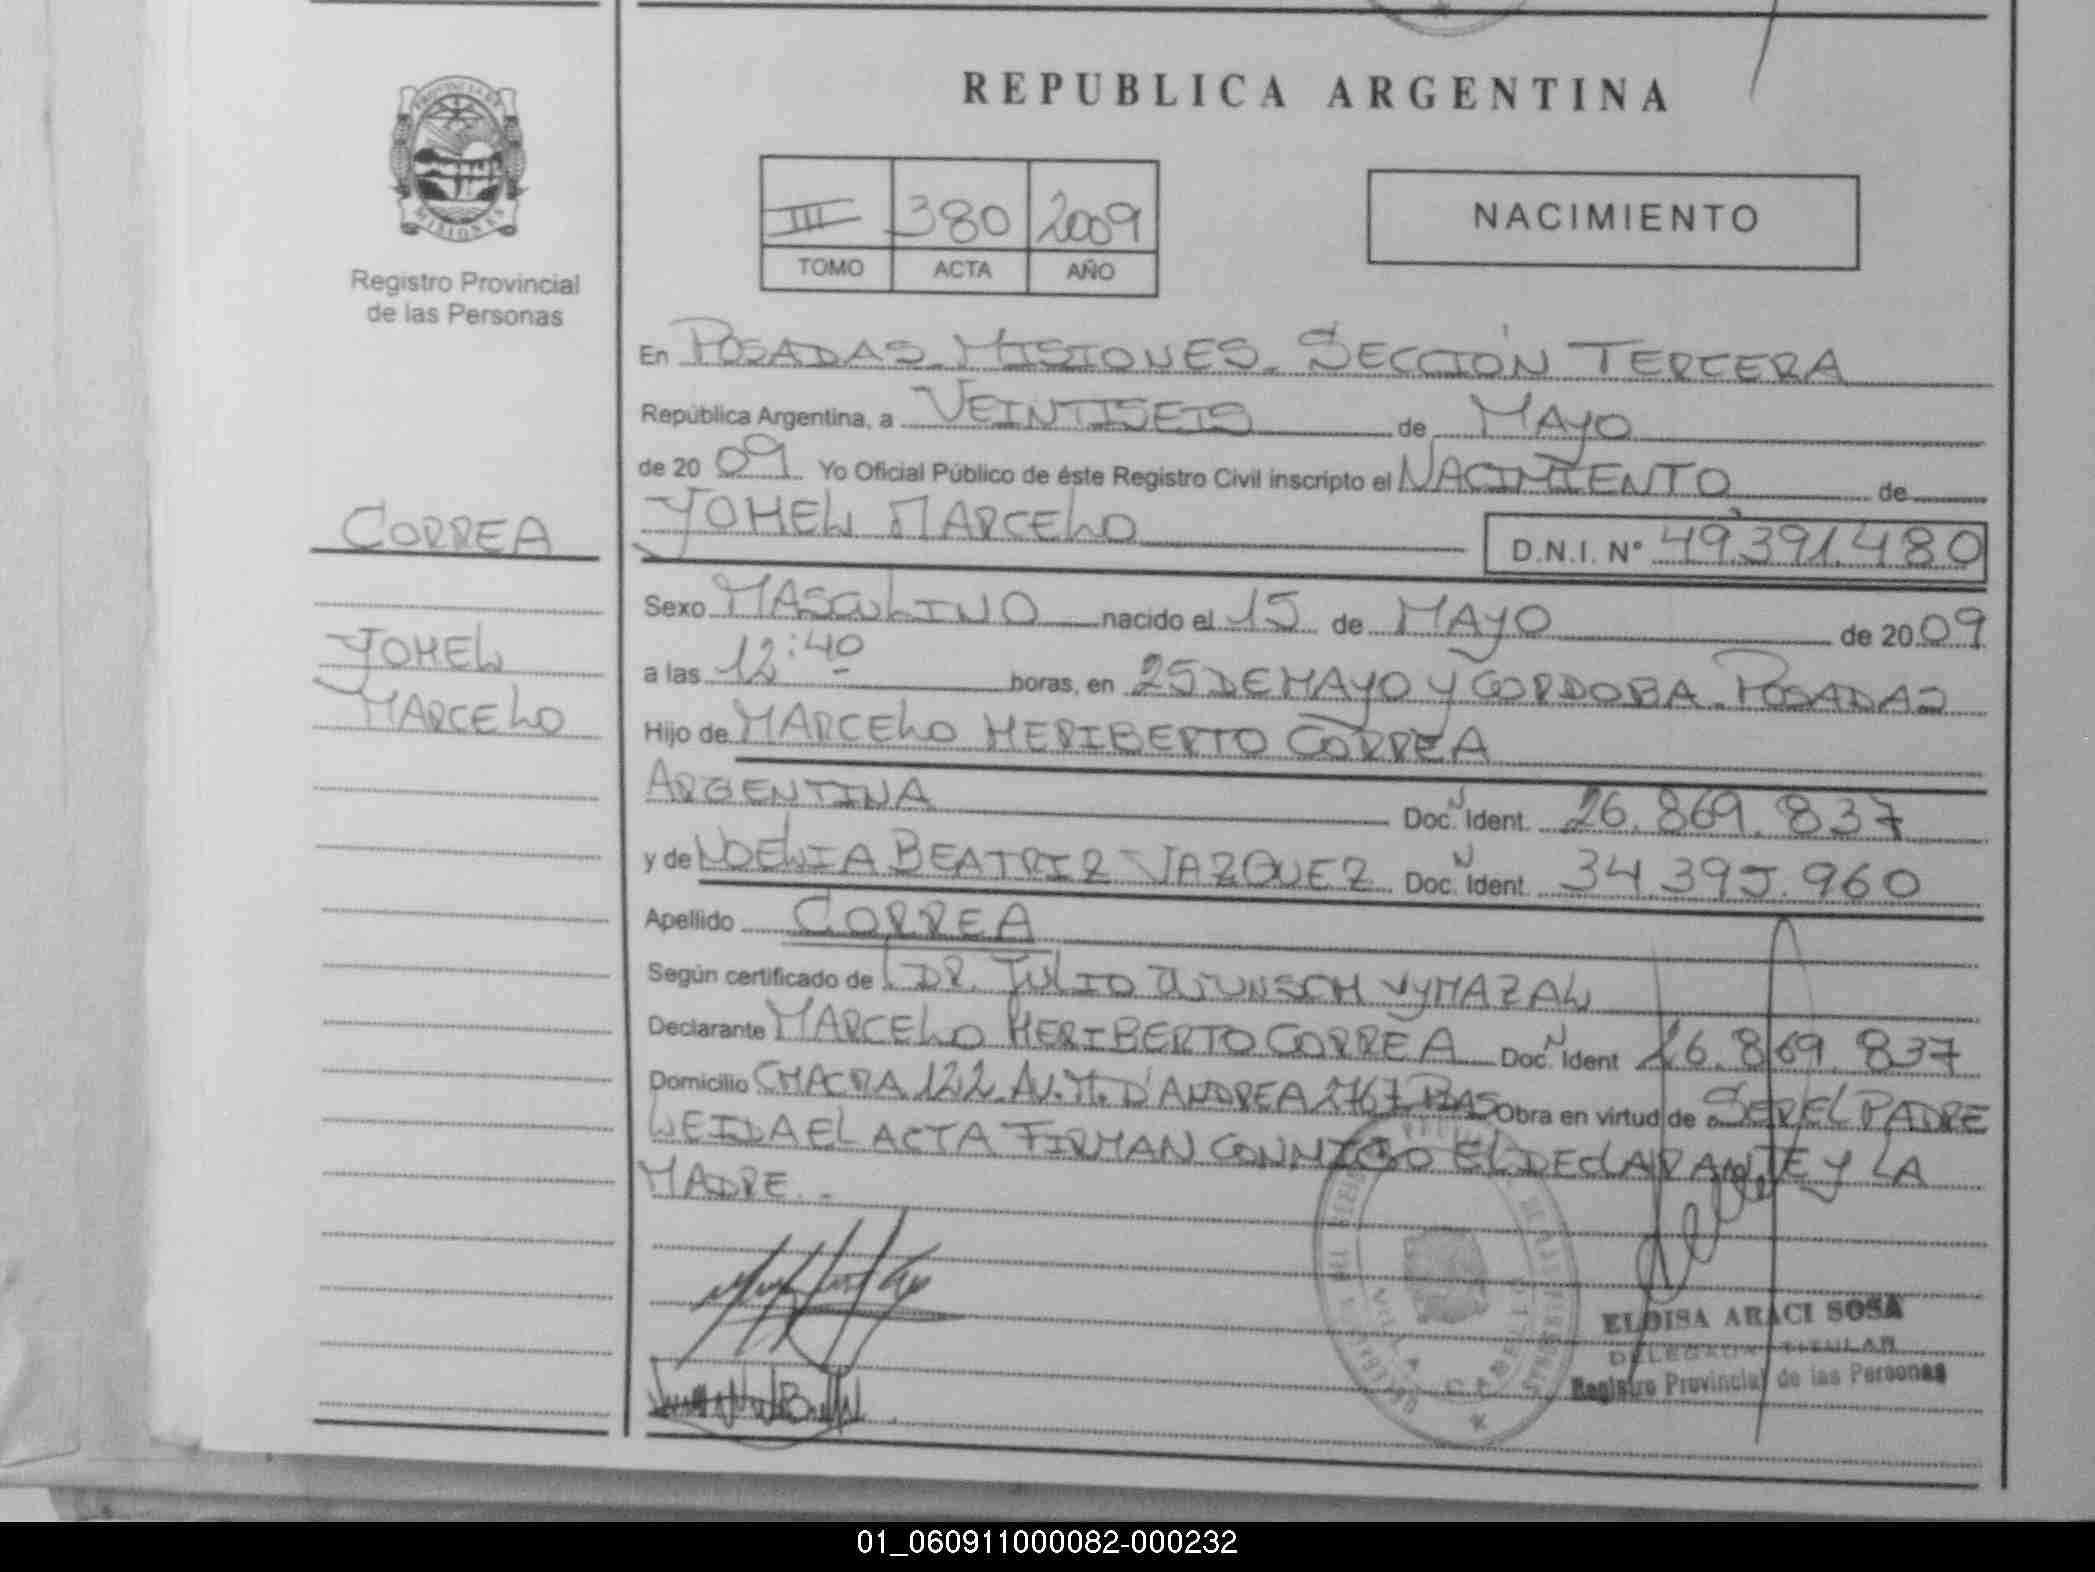 REPUBLICA ARGENTINA
PROVINCIA DE
MISIONES
Registro Provincial
de las Personas
III 380 2009
TOMO ACTA AÑO
NACIMIENTO
En POSADAS. MISIONES. SECCIÓN TERCERA
República Argentina, a VEINTISEIS de MAYO
de 2009 Yo Oficial Público de éste Registro Civil inscripto el NACIMIENTO de
YOHEL MARCELO D.N.I. N° 49.391.480
CORREA
YOHEL
MARCELO
Sexo MASCULINO nacido el 15 de MAYO de 2009
a las 12:40 horas, en 25 DE MAYO Y CORDOBA. POSADAS
Hijo de MARCELO HERIBERTO CORREA
ARGENTINA Doc. N Ident. 26.869.837
y de NOELIA BEATRIZ VAZQUEZ Doc. N Ident. 34.395.960
Apellido CORREA
Según certificado de DR. JULIO WUNSCH VYMAZAL
Declarante MARCELO HERIBERTO CORREA Doc. N Ident 26.869.837
Domicilio CHACRA 122. AV. M. D'ANDREA 2767 PDAS Obra en virtud de SER EL PADRE
LEIDA EL ACTA FIRMAN CONMIGO EL DECLARANTE Y LA
MADRE.
ELOISA ARACI SOSA
DELEGADA TITULAR
Registro Provincial de las Personas
01_060911000082-000232